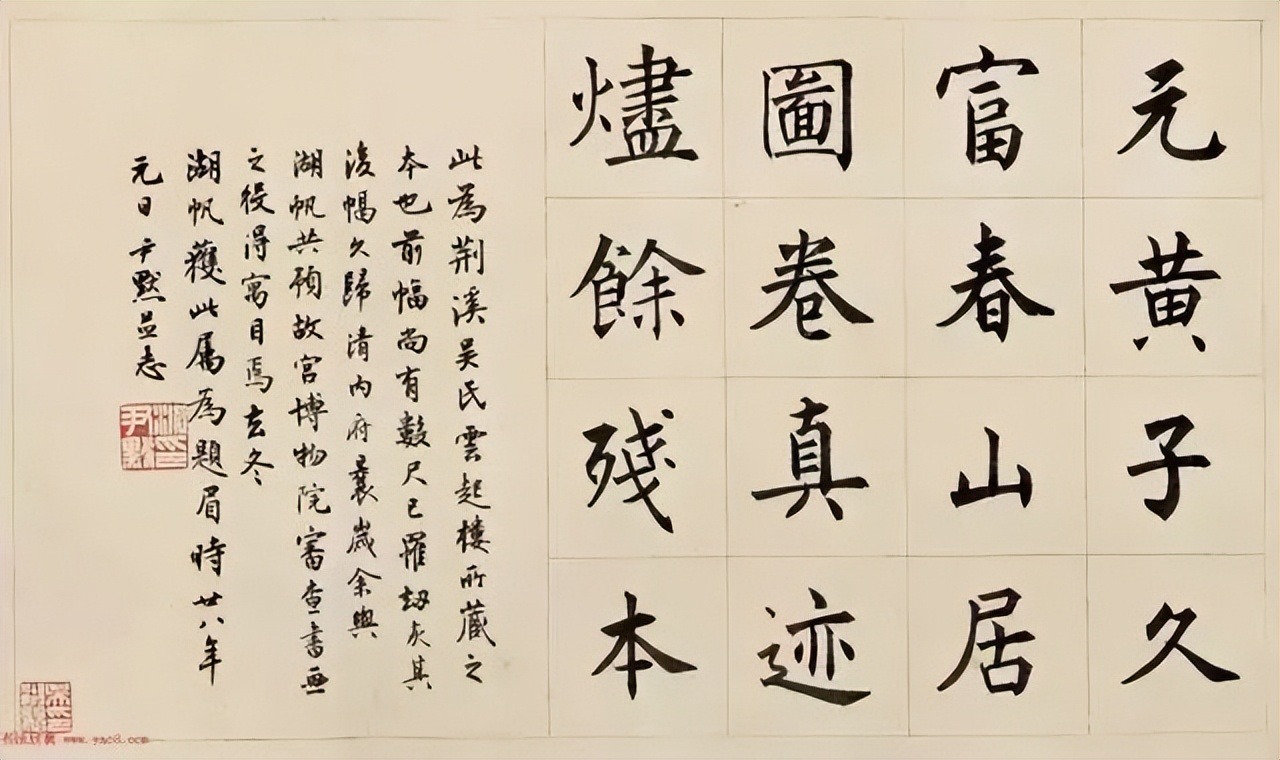 元黄子久
富春山居
圖卷真迹
燼餘殘本
此為荆溪吴氏雲起樓所藏之
本也前幅尚有數尺已罹劫灰其
後幅久歸清内府曩歲余與
湖帆共預故宫博物院審查書画
之役得寓目焉去冬
湖帆獲此属為題眉時廿八年
元日尹默並志
尹默
www.yac8.com